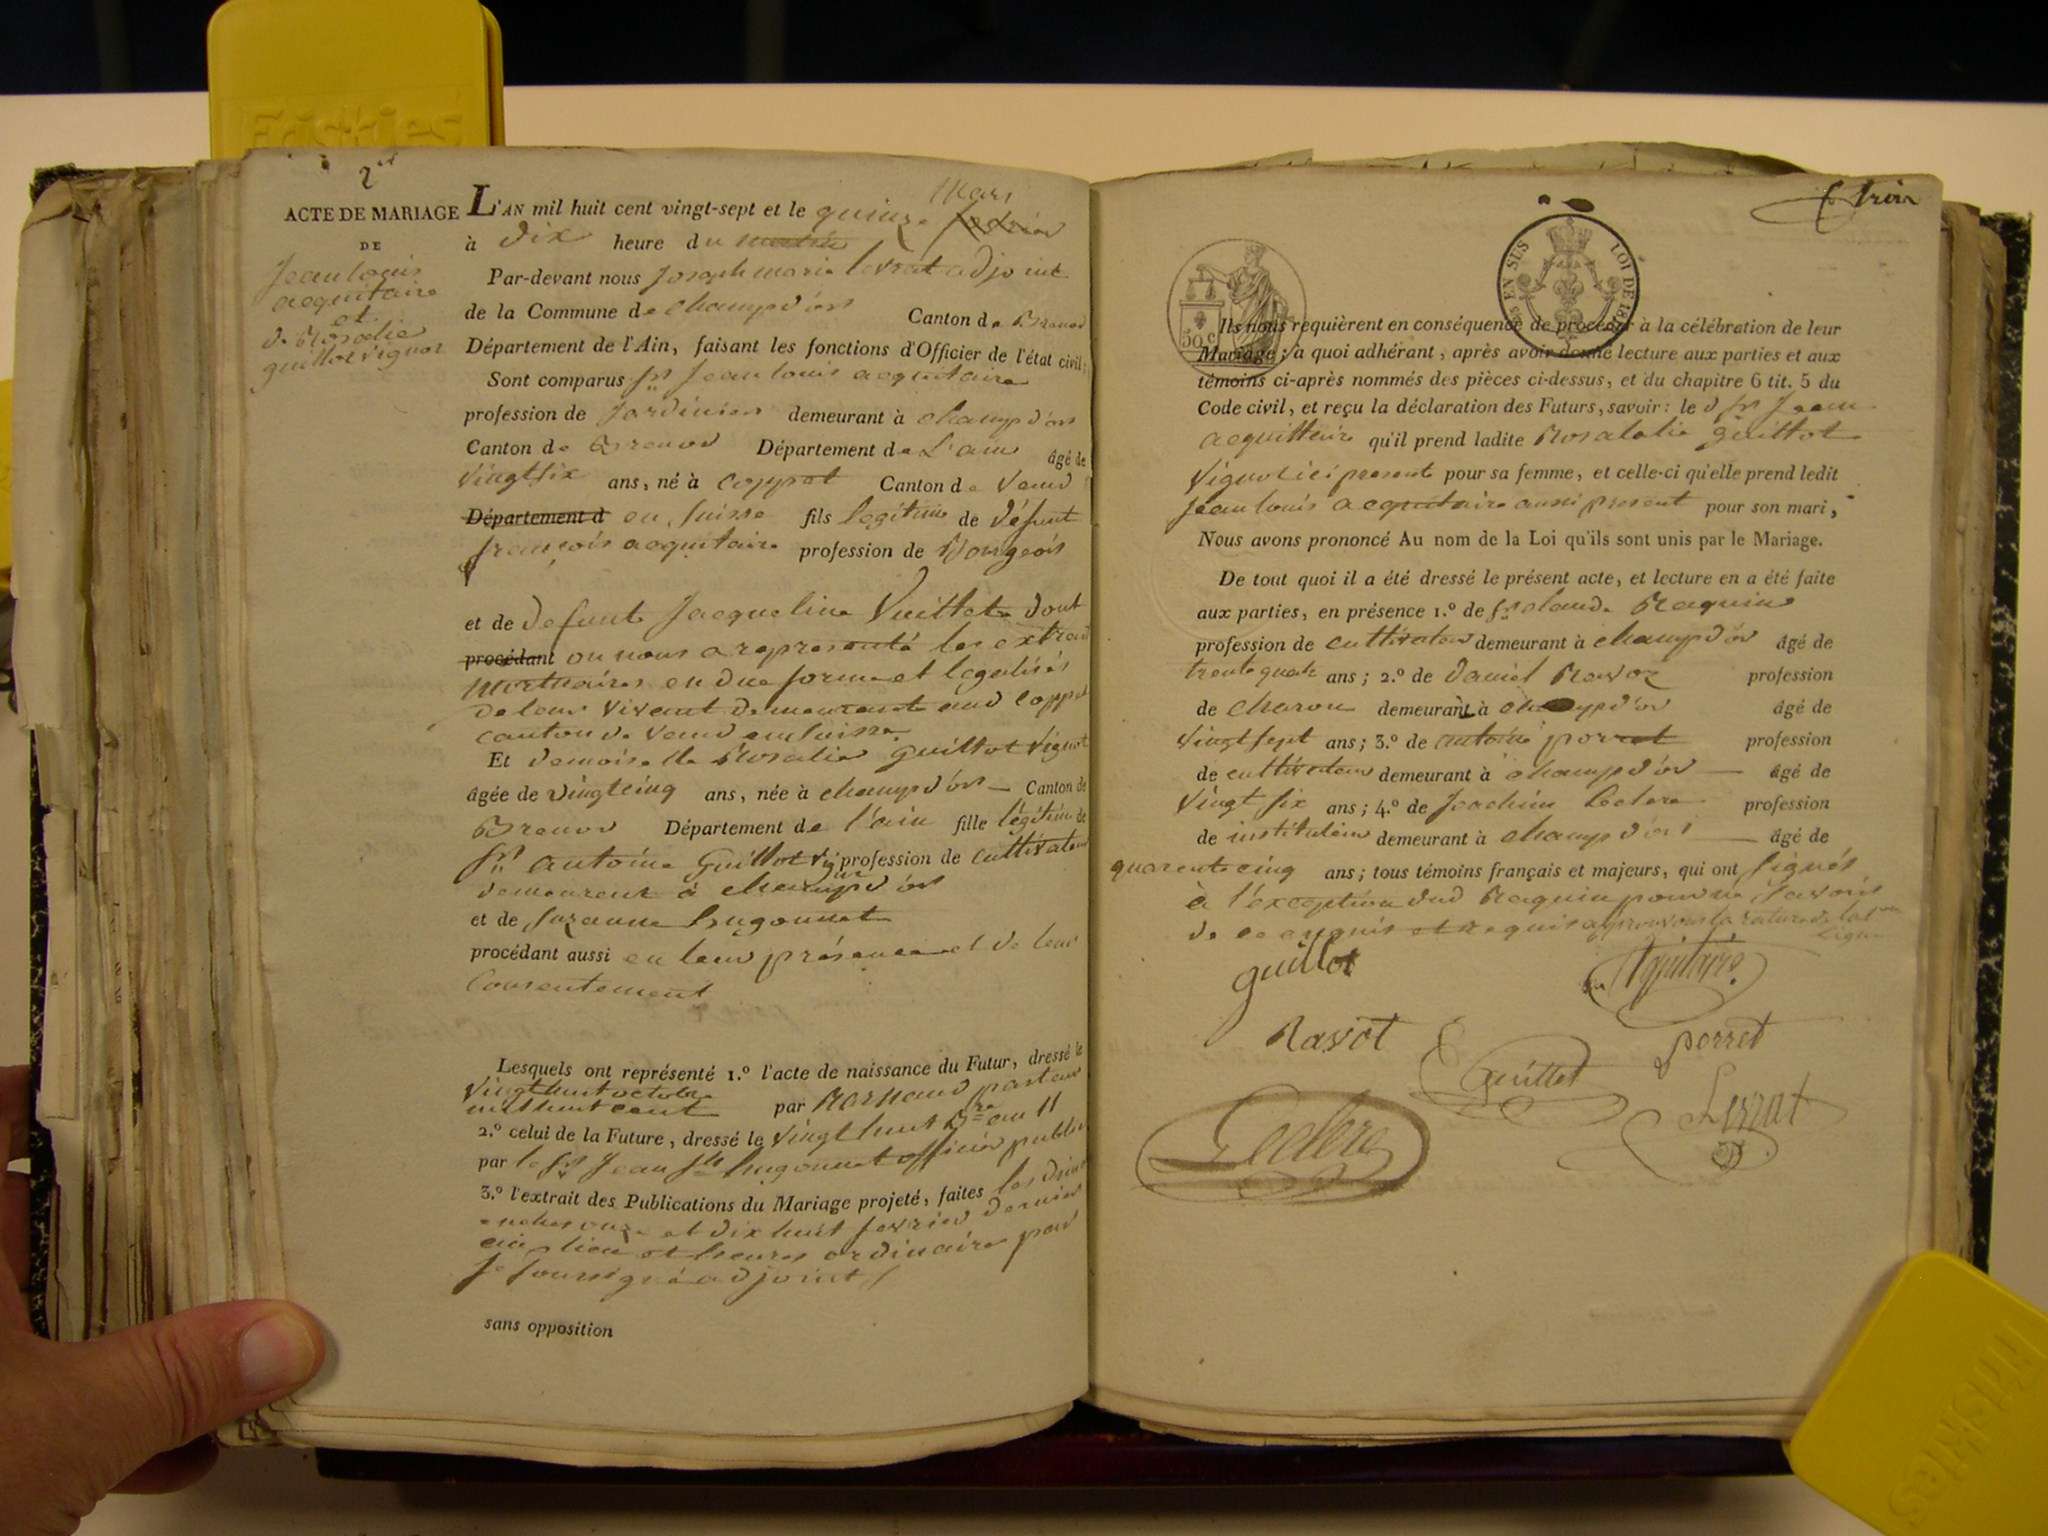 Friskies
2
ACTE DE MARIAGE
DE
Jean louis
acquitaire
et
de Rosalie
guillot vignot
L'AN mil huit cent vingt-sept et le quinze fevrier mars
à dix heure du matin
Par-devant nous Joseph marie levrat adjoint
de la Commune de champd'or Canton de Brenod
Département de l'Ain, faisant les fonctions d'Officier de l'état civil;
Sont comparus Sr Jean louis acquitaire
profession de Jardinier demeurant à champd'or
Canton de Brenod Département de L'ain âgé de
vingt six ans, né à coppet Canton de vaud
Département d en suisse fils legitime de défunt
françois acquitaire profession de Bourgeois
et de defunte Jacqueline Vuillet dont
procédant on nous a representé les extraits
mortuaires en due forme et legalisés
de leur vivant demeurant aud coppet
canton de vaud en suisse
Et demoiselle Rosalie guillot vignot
âgée de vingt cinq ans, née à champd'or Canton de
Brenod Département de l'ain fille légitime de
Sr antoine Guillot vignot profession de cultivateur
demeurent à champd'or
et de suzanne hugonnet
procédant aussi en leur présence et de leur
consentement
Lesquels ont représenté 1.º l'acte de naissance du Futur, dressé le
vingt huit octobre
mil huit cent par pasteur
2.º celui de la Future, dressé le vingt huit Bre an 11
par le Sr Jean hugonnet officier public
3.º l'extrait des Publications du Mariage projeté, faites les dim
anches onze et dix huit fevrier dernier
aux lieu et heures ordinaires par
le soussigné adjoint
sans opposition
50 c
EN SUS LOI DE
Ils nous requièrent en conséquence de procéder à la célébration de leur
Mariage; à quoi adhérant, après avoir donné lecture aux parties et aux
témoins ci-après nommés des pièces ci-dessus, et du chapitre 6 tit. 5 du
Code civil, et reçu la déclaration des Futurs, savoir: le d Sr Jean
acquittaire qu'il prend ladite Rosalalie guillot
vignot ici presente pour sa femme, et celle-ci qu'elle prend ledit
Jean louis acquitaire aussi present pour son mari,
Nous avons prononcé Au nom de la Loi qu'ils sont unis par le Mariage.
De tout quoi il a été dressé le présent acte, et lecture en a été faite
aux parties, en présence 1.º de Sr claude Raquin
profession de cultivateur demeurant à champd'or âgé de
trente quatre ans; 2.º de daniel Ravoz profession
de charon demeurant à champd'or âgé de
vingt sept ans; 3.º de antoine porret profession
de cultivateur demeurant à champd'or âgé de
vingt six ans; 4.º de Joachim leclerc profession
de instituteur demeurant à champd'or âgé de
quarente cinq ans; tous témoins français et majeurs, qui ont signés
à l'exception dud Raquin pour ne savoir
de ce enquis et requis approuvons la rature de la
ligne
guillot
Aquitaire
Ravot
porret
Guillet
Levrat
Leclerc
Friskies